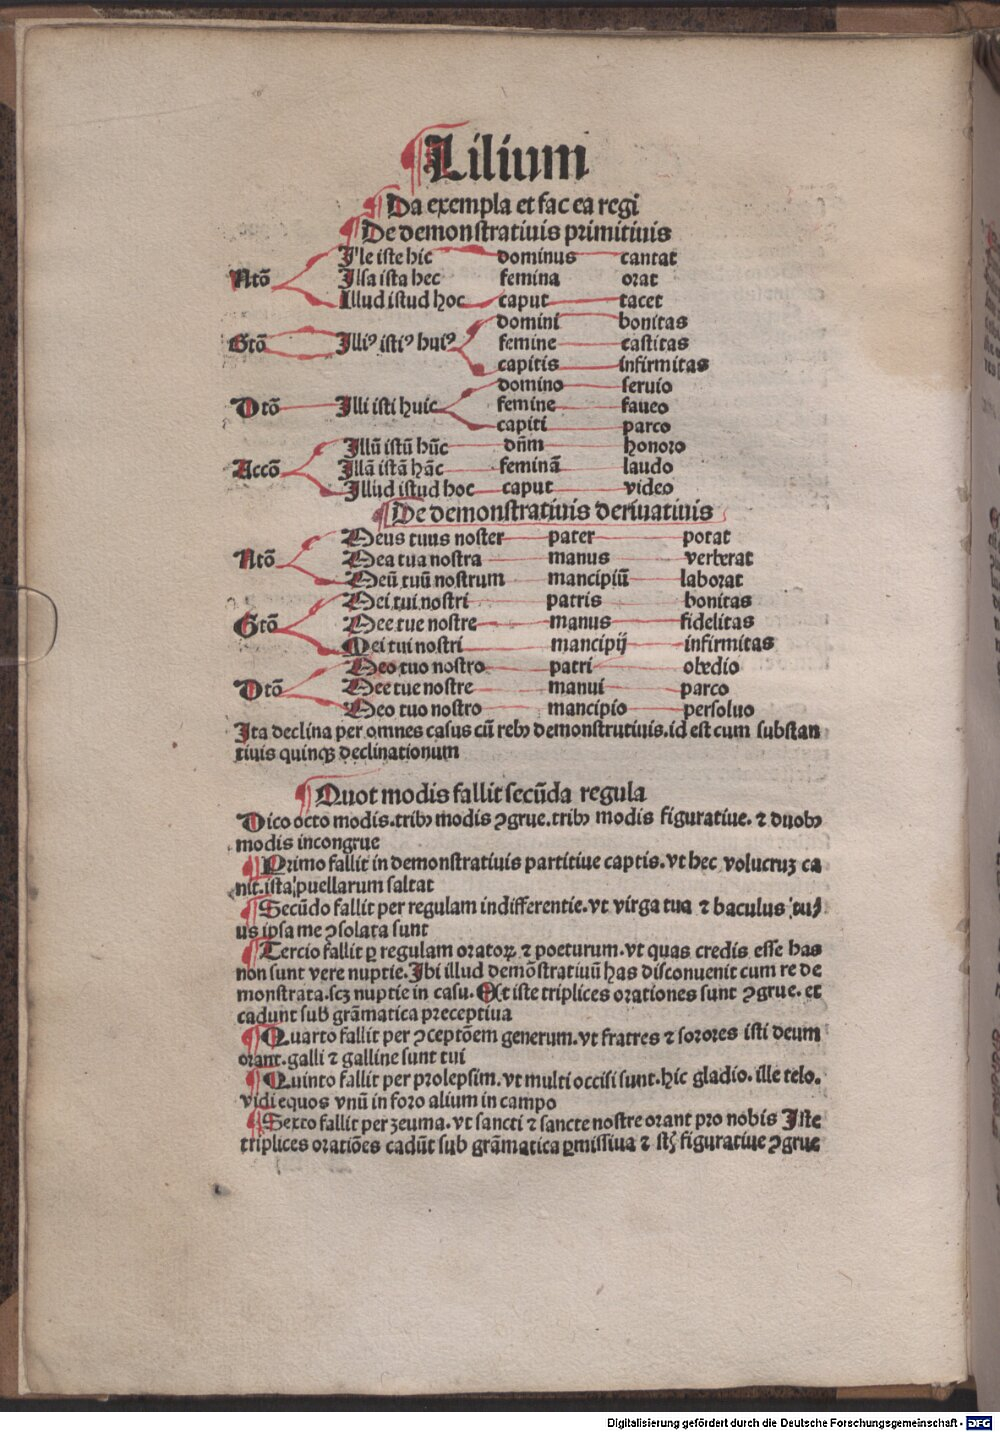 Lilium
Da exempla et fac ea regi
De demonstratiuis primitiuis
Ille iste hic dominus cantat
Ntō Illa ista hec femina orat
Illud istud hoc caput tacet
domini bonitas
Gtō Illiꝰ istiꝰ huiꝰ femine castitas
capitis infirmitas
domino seruio
Dtō Illi isti huic femine faueo
capiti parco
Illū istū hūc dn̄m honoro
Accō Illā istā hāc feminā laudo
Illud istud hoc caput video
De demonstratiuis deriuatiuis
Meus tuus noster pater potat
Ntō Mea tua nostra manus verberat
Meū tuū nostrum mancipiū laborat
Mei tui nostri patris bonitas
Gtō Mee tue nostre manus fidelitas
Mei tui nostri mancipij infirmitas
Meo tuo nostro patri obedio
Dtō Mee tue nostre manui parco
Meo tuo nostro mancipio persoluo
Ita declina per omnes casus cū rebꝫ demonstrutiuis.id est cum substan
tiuis quinqꝫ declinationum
Quot modis fallit secūda regula
Dico octo modis.tribꝫ modis ꝯgrue.tribꝫ modis figuratiue. ⁊ duobꝫ
modis incongrue
Primo fallit in demonstratiuis partitiue captis.vt hec volucruꝫ ca
nit.ista puellarum saltat
Secūdo fallit per regulam indifferentie.vt virga tua ⁊ baculus tuꝰ
us ipsa me ꝯsolata sunt
Tercio fallit ꝑ regulam oratoꝝ ⁊ poeturum.vt quas credis esse has
non sunt vere nuptie.Ibi illud demōstratiuū has disconuenit cum re de
monstrata.scꝫ nuptie in casu. Et iste triplices orationes sunt ꝯgrue. et
cadunt sub grāmatica preceptiua
Quarto fallit per ꝯceptōem generum.vt fratres ⁊ sorores isti deum
orant.galli ⁊ galline sunt tui
Quinto fallit per prolepsim.vt multi occisi sunt.hic gladio.ille telo.
vidi equos vnū in foro alium in campo
Sexto fallit per zeuma.vt sancti ⁊ sancte nostre orant pro nobis Iste
triplices oratiōes cadūt sub grāmatica ꝑmissiua ⁊ sūt figuratiue ꝯgrue
Digitalisierung gefördert durch die Deutsche Forschungsgemeinschaft - DFG